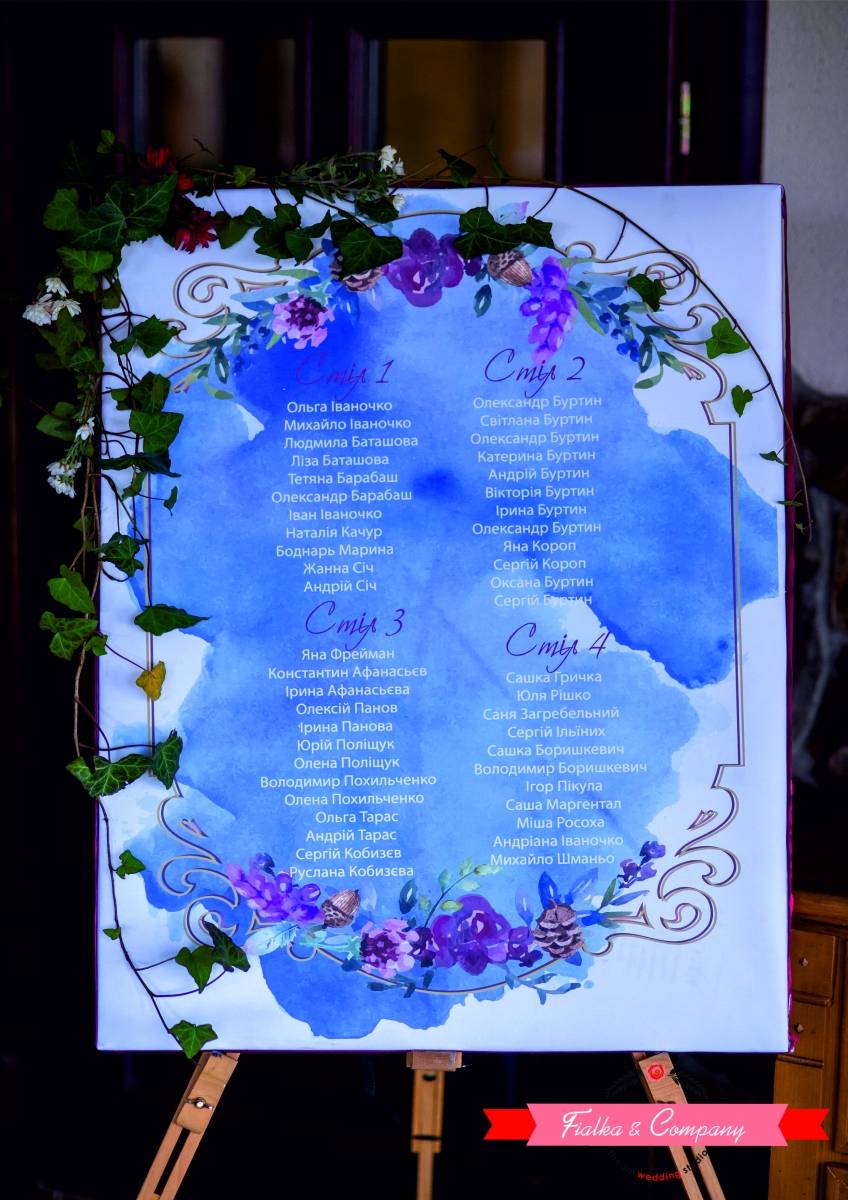 Стіл 1
Ольга Іваночко
Михайло Іваночко
Людмила Баташова
Ліза Баташова
Тетяна Барабаш
Олександр Барабаш
Іван Іваночко
Наталія Качур
Боднарь Марина
Жанна Січ
Андрій Січ
Стіл 2
Олександр Буртин
Світлана Буртин
Олександр Буртин
Катерина Буртин
Андрій Буртин
Вікторія Буртин
Ірина Буртин
Олександр Буртин
Яна Короп
Сергій Короп
Оксана Буртин
Сергій Буртин
Стіл 3
Яна Фрейман
Константин Афанасьєв
Ірина Афанасьєва
Олексій Панов
Ірина Панова
Юрій Поліщук
Олена Поліщук
Володимир Похильченко
Олена Похильченко
Ольга Тарас
Андрій Тарас
Сергій Кобизєв
Руслана Кобизєва
Стіл 4
Сашка Гричка
Юля Рішко
Саня Загребельний
Сергій Ільїних
Сашка Боришкевич
Володимир Боришкевич
Ігор Пікула
Саша Маргентал
Міша Росоха
Андріана Іваночко
Михайло Шманьо
Fialka & Company
wedding studio